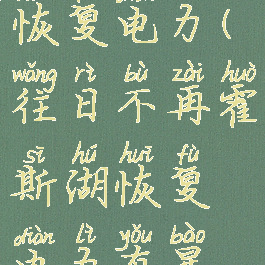 恢复电力(
wǎng rì bù zài huò
往日不再霍
sī hú huī fù
斯湖恢复
diàn lì yǒu bào